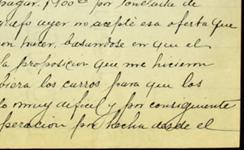 pagar. 1900 por tonelada de
ayer no acepté esa oferta que
on hacer, basandose en que el
la proposicion que me hicieron
biera los carros para que los
lo muy dificil y por consiguiente
peracion por hecha desde el